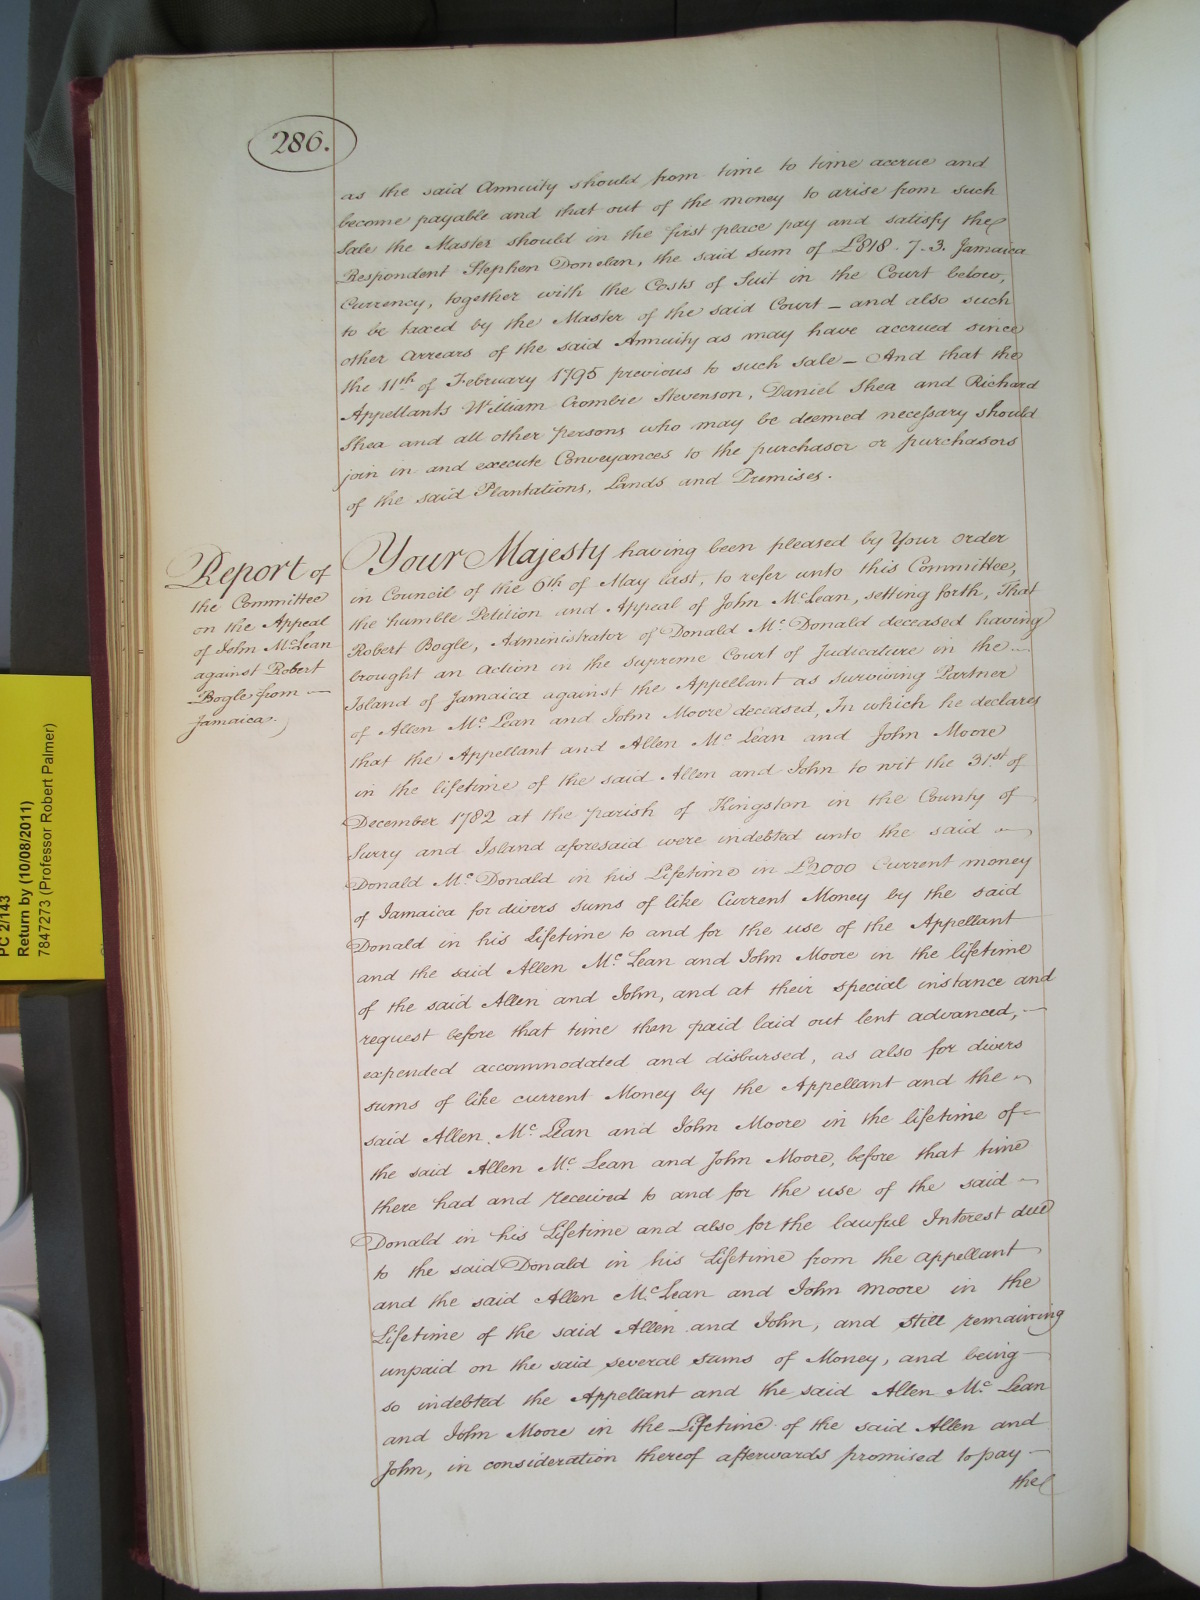 286.
as the said Annuity should from time to time accrue and
become payable and that out of the money to arise from such
Sale the Master should in the first place pay and satisfy the
Respondent Stephen Donelan, the said Sum of £818. 7. 3. Jamaica
Currency, together with the Costs of Suit in the Court below,
to be taxed by the Master of the said Court – and also such
other Arrears of the said Annuity as may have accrued since
the 11th of February 1795 previous to such sale – And that the
Appellants William Crombie Stevenson, Daniel Shea and Richard
Shea and all other persons who may be deemed necessary should
join in and execute Conveyances to the purchasor or purchasors
of the said Plantations, Lands and Premises.
Report of
the Committee
on the Appeal
of John McLean
against Robert
Bogle from —
Jamaica.
Your Majesty having been pleased by Your Order
in Council of the 6th of May last, to refer unto this Committee,
the humble Petition and Appeal of John McLean, setting forth, That
Robert Bogle, Administrator of Donald Mc Donald deceased having
brought an Action in the Supreme Court of Judicature in the —
Island of Jamaica against the Appellant as surviving Partner
of Allen Mc Lean and John Moore deceased, In which he declares
that the Appellant and Allen Mc Lean and John Moore
in the lifetime of the said Allen and John to wit the 31st of
December 1782 at the parish of Kingston in the County of
Surry and Island aforesaid were indebted unto the said —
Donald Mc Donald in his Lifetime in £2000 Current money
of Jamaica for divers sums of like Current Money by the said
Donald in his Lifetime to and for the use of the Appellant
and the said Allen Mc Lean and John Moore in the lifetime
of the said Allen and John, and at their special instance and
request before that time then paid laid out lent advanced, —
expended accommodated and disbursed, as also for divers
sums of like current Money by the Appellant and the —
said Allen Mc Lean and John Moore in the lifetime of —
the said Allen Mc Lean and John Moore, before that time
there had and received to and for the use of the said —
Donald in his Lifetime and also for the lawful Interest due
to the said Donald in his Lifetime from the appellant
and the said Allen McLean and John Moore in the
Lifetime of the said Allen and John, and still remaining
unpaid on the said several sums of Money, and being —
so indebted the Appellant and the said Allen Mc Lean
and John Moore in the Lifetime of the said Allen and
John, in consideration thereof afterwards promised to pay —
the
PC 2/143
Return by (10/08/2011)
7847273 (Professor Robert Palmer)